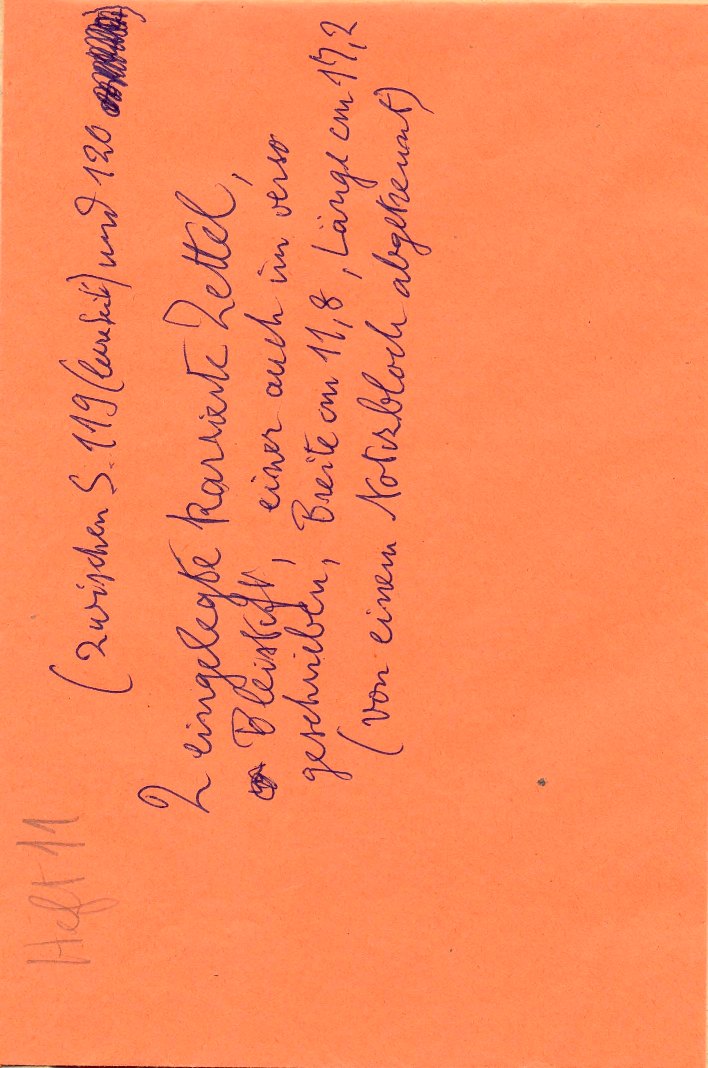 Heft 11
(zwischen S. 119 (Leerseite) und 120)
2 eingelegte karrierte Zettel,
Bleistift, einer auch im verso
geschrieben, Breite cm 11,8, Länge cm 17,2
(von einem Notizbloch abgetrennt)